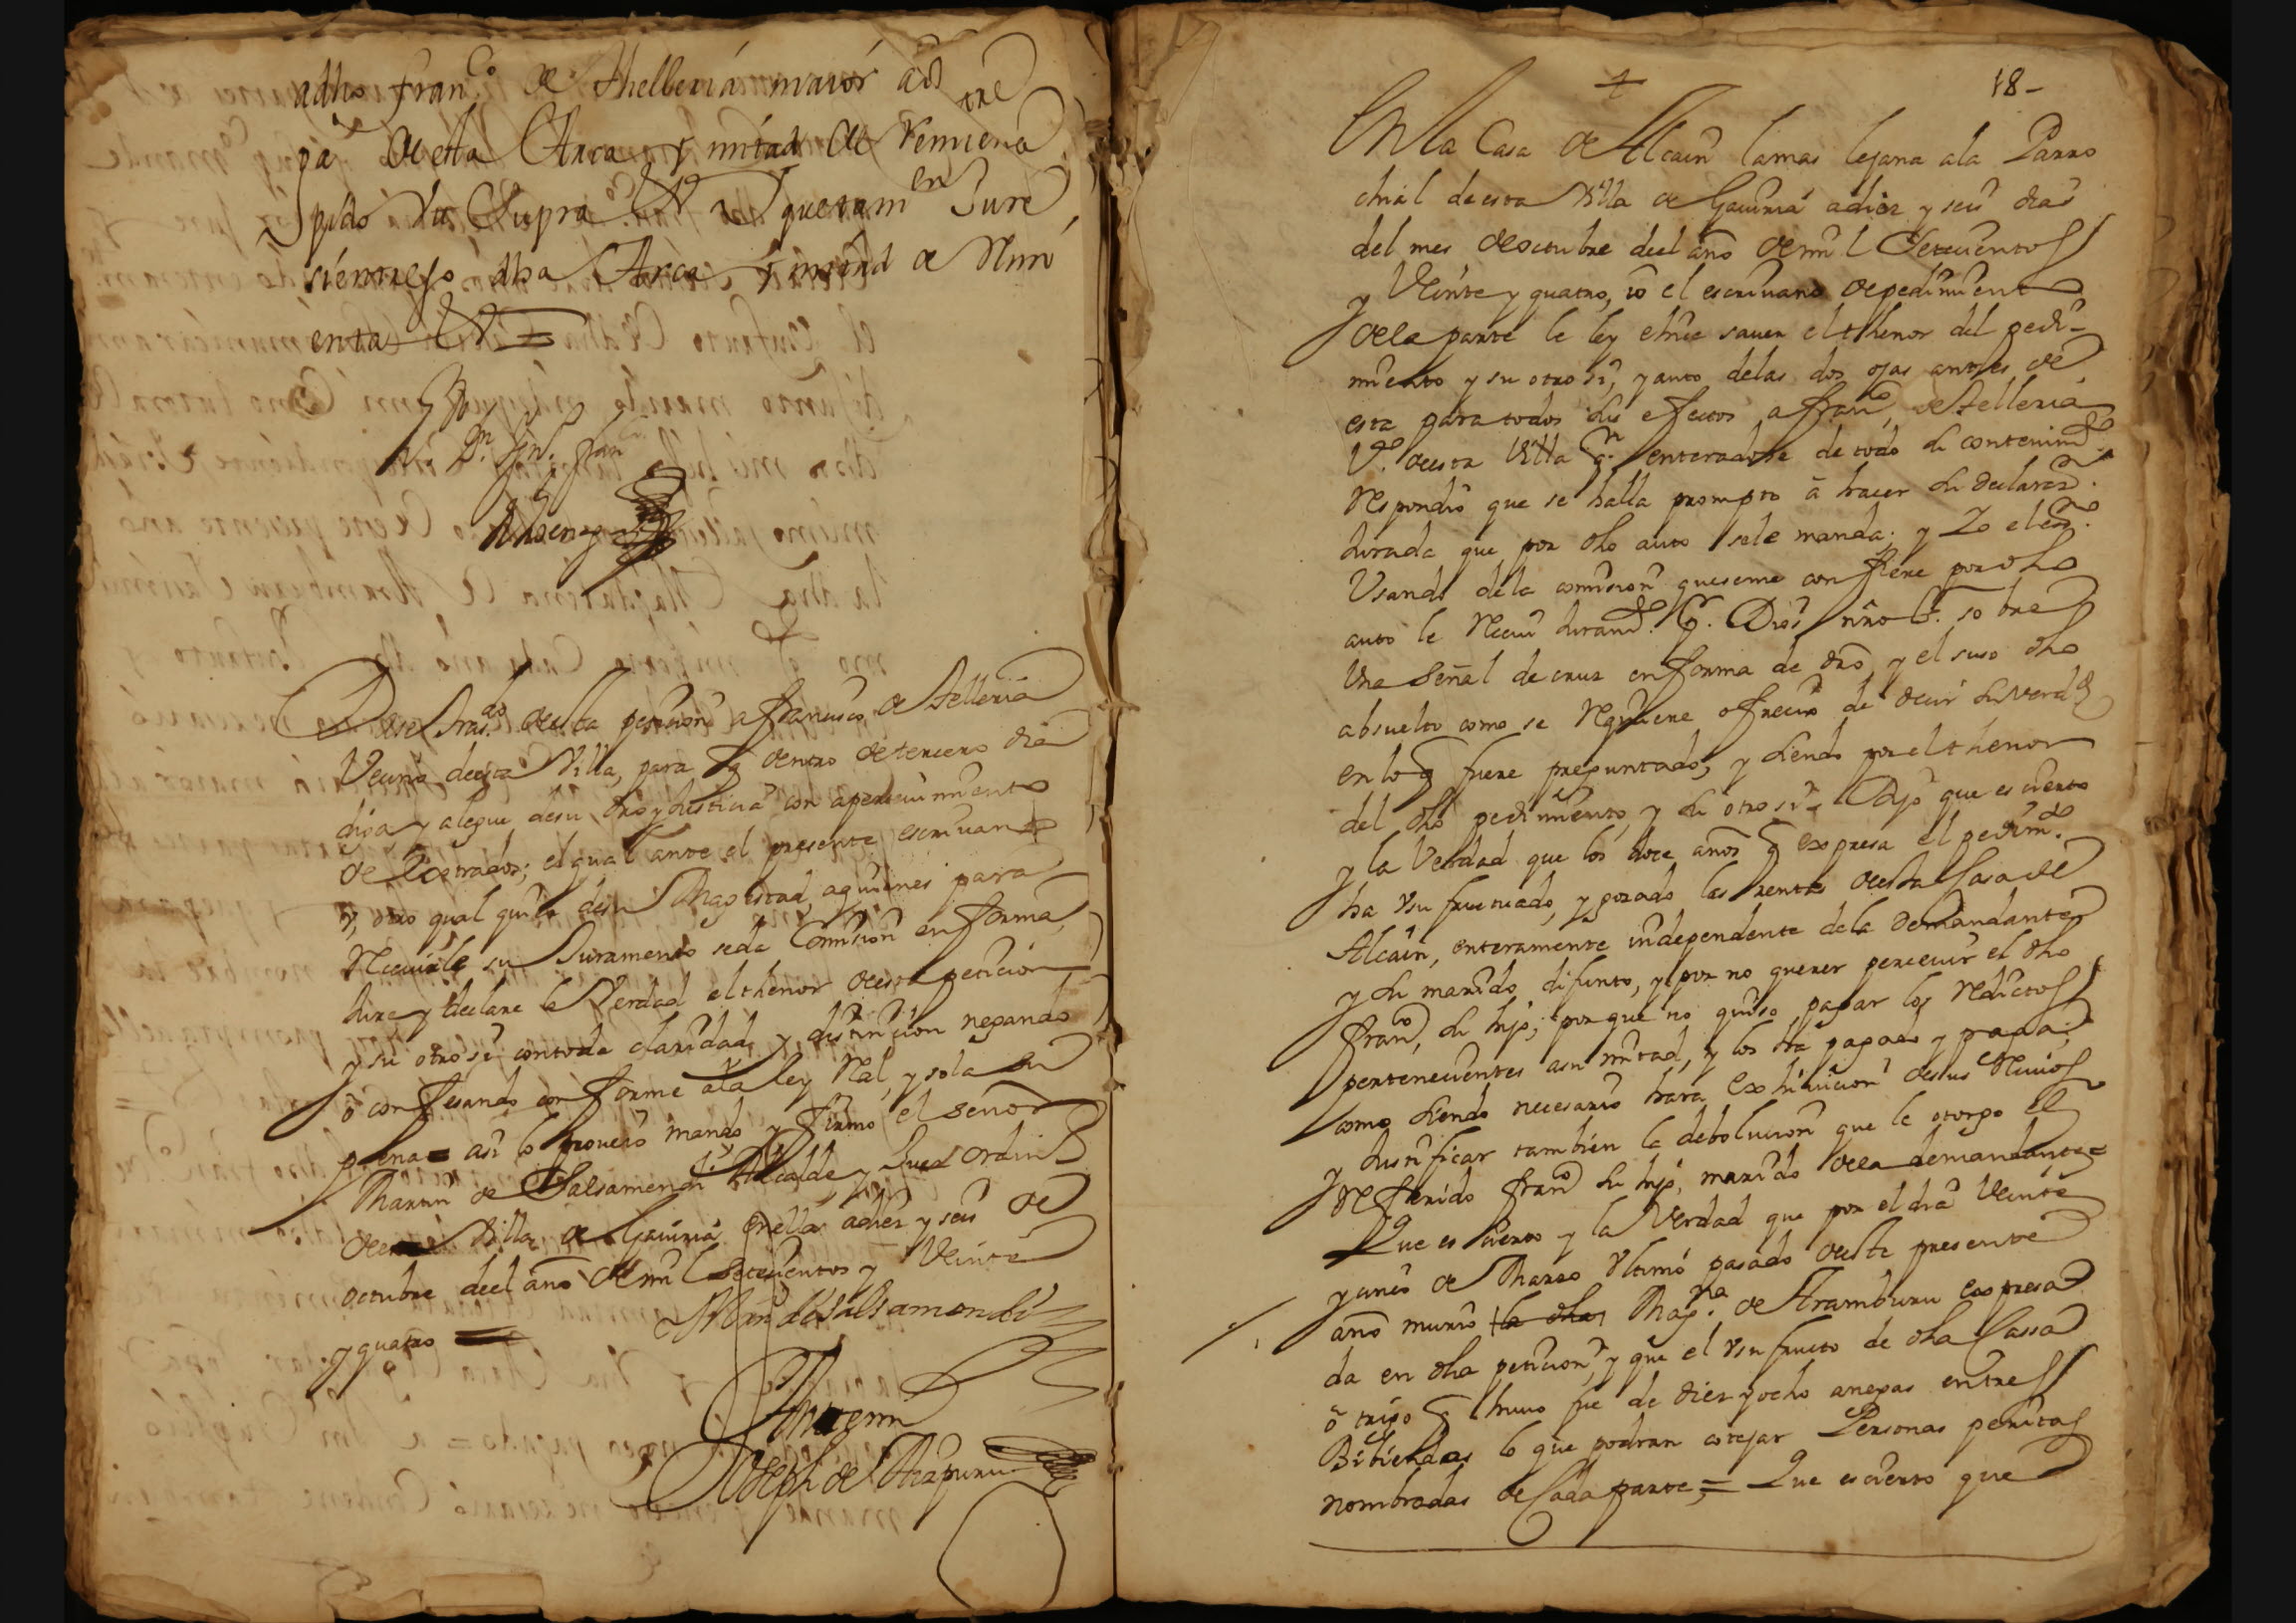 adho fran.co de Atelleria maior a q
tre
pa de esta Arca y mitad de vemiena
pido Jus Supra Vt queram en Jure
siempre so dha Arca y mitad de
enta Vt =
D.n fran
Dese tras.do desta petision a francisco de Atelleria
Vecino desta Villa, para q dentro de tercero dia
diga y alegue desu dro y Justicia con apercivimiento
de Estrados; el qual ante el presente escriuano
y, otro qual quiera desu Magestad aquienes para
Receuirle su Juramento seda Comision en forma,
Jure y declare la Verdad el thenor desta peticion
y su otrosi contoda claridad y distincion negando
ô confesando conforme ala ley Real, y sola su
pena = asi lo proueio mando y firmo el señor
Martin de Salsamendi Alcalde y Juez ordin.o
desta Villa de Gauiria en ella adiez y seis de
octubre deel año de mil Setecientos y Veinte
y quatro =
Min de Salsamendi
Ante mi
Joseph de Aizpuru
18-
En la Casa de Alcain lamas lejana ala Parro
chial de esta Villa de Gauiria adiez y seis dias
del mes de octubre deel año de mil Setecientos
y Veinte y quatro, io el escriuano de pedimiento
dela parte le ley e hice sauer el thenor del pedi-
miento y su otro si, y auto delas dos ojas antes de
esta para todos sus efectos a fran.co de Atelleria
V.o desta Villa q.n enteradose de todo su contenim.to
Respondio que se halla prompto â hacer su declaraz.n
Jurada que por dho auto sele manda; y Yo el es.no
Usando dela comision queseme confiere por dho
auto le Receui Juram.to p.r Dios nro S.r sobre
Una Señal de cruz en forma de dro, y el suso dho
absuelto como se Requiere ofrecio de decir su verdad
en lo q fuere preguntado, y siendo por el thenor
del dho pedimiento, y su otro si = Dijo que es cierto
y la Verdad que los doce años q Expresa el pedim.to
ha vsufructuado, y gozado las Rentas desta Casa de
Alcain, enteramente independente dela Demandante
y su marido difunto, y por no querer perceuir el dho
fran.co su hijo; por que no quiso pagar los Reditos
pertenecientes asu mitad, y los ha pagado y paga;
como siendo necesario hara Exhiuicion desus Reciuos
y Justificar tambien la deboluzion que le otorgo el
Referido fran.co su hijo, marido dela demandante =
Que es cierto y la Verdad que por el dia Veinte
y cinco de Marzo Vltimo pasado deeste presente
año murio la dha Mag.na de Aramburu Expresa
da en dha peticion, y que el vsufructo de dha Cassa
ô trigo q huuo fue de diez y ocho anegas entre
Bibiendas lo que podran cotejar Personas peritas
nombradas de Cada parte, = Que es cierto que